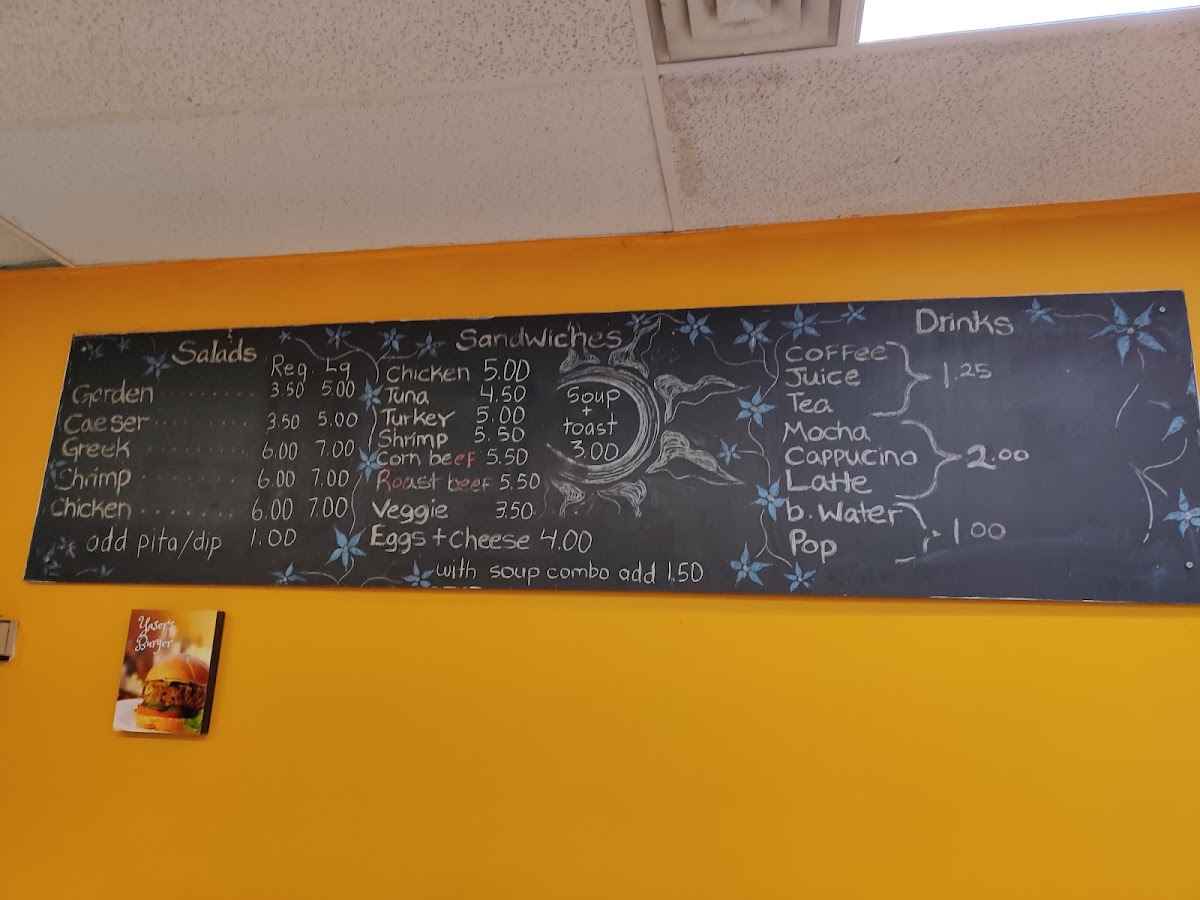 Salads
Reg. Lg
Garden ........ 3.50 5.00
Caeser ........ 3.50 5.00
Greek ........ 6.00 7.00
Shrimp ........ 6.00 7.00
Chicken ....... 6.00 7.00
add pita/dip 1.00
Sandwiches
Chicken 5.00
Tuna 4.50
Turkey 5.00
Shrimp 5.50
Corn beef 5.50
Roast beef 5.50
Veggie 3.50
Eggs + Cheese 4.00
with soup combo add 1.50
Soup
+
toast
3.00
Drinks
Coffee
Juice
Tea
1.25
Mocha
Cappucino
Latte
2.00
b. Water
Pop
1.00
Yaser's
Burger